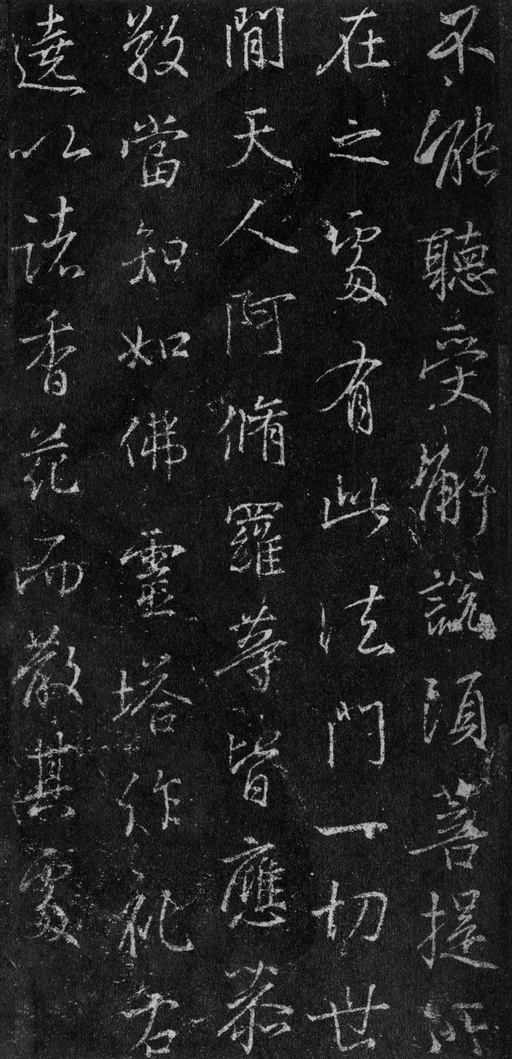 不能聽受解說須菩提所
在之處有此法門一切世
間天人阿脩羅等皆應恭
敬當知如佛靈塔作礼右
遶以諸香花而散其處